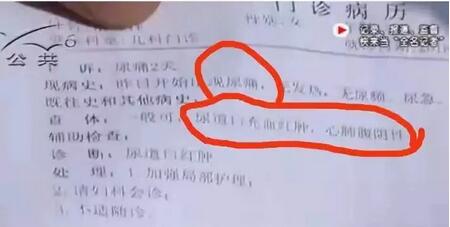 门诊病历
性别:女
科室:儿科门诊
记录、报道、监督
快来当“全名记者”
公共
诉:尿痛2天
现病史:昨日开始出现尿痛,无发热,无尿频、尿急
既往史和其他病史:
查体:一般可,尿道口充血红肿,心肺腹阴性
辅助检查:
诊断:尿道口红肿
处理:1.加强局部护理;
2.请妇科会诊;
3.不适随诊